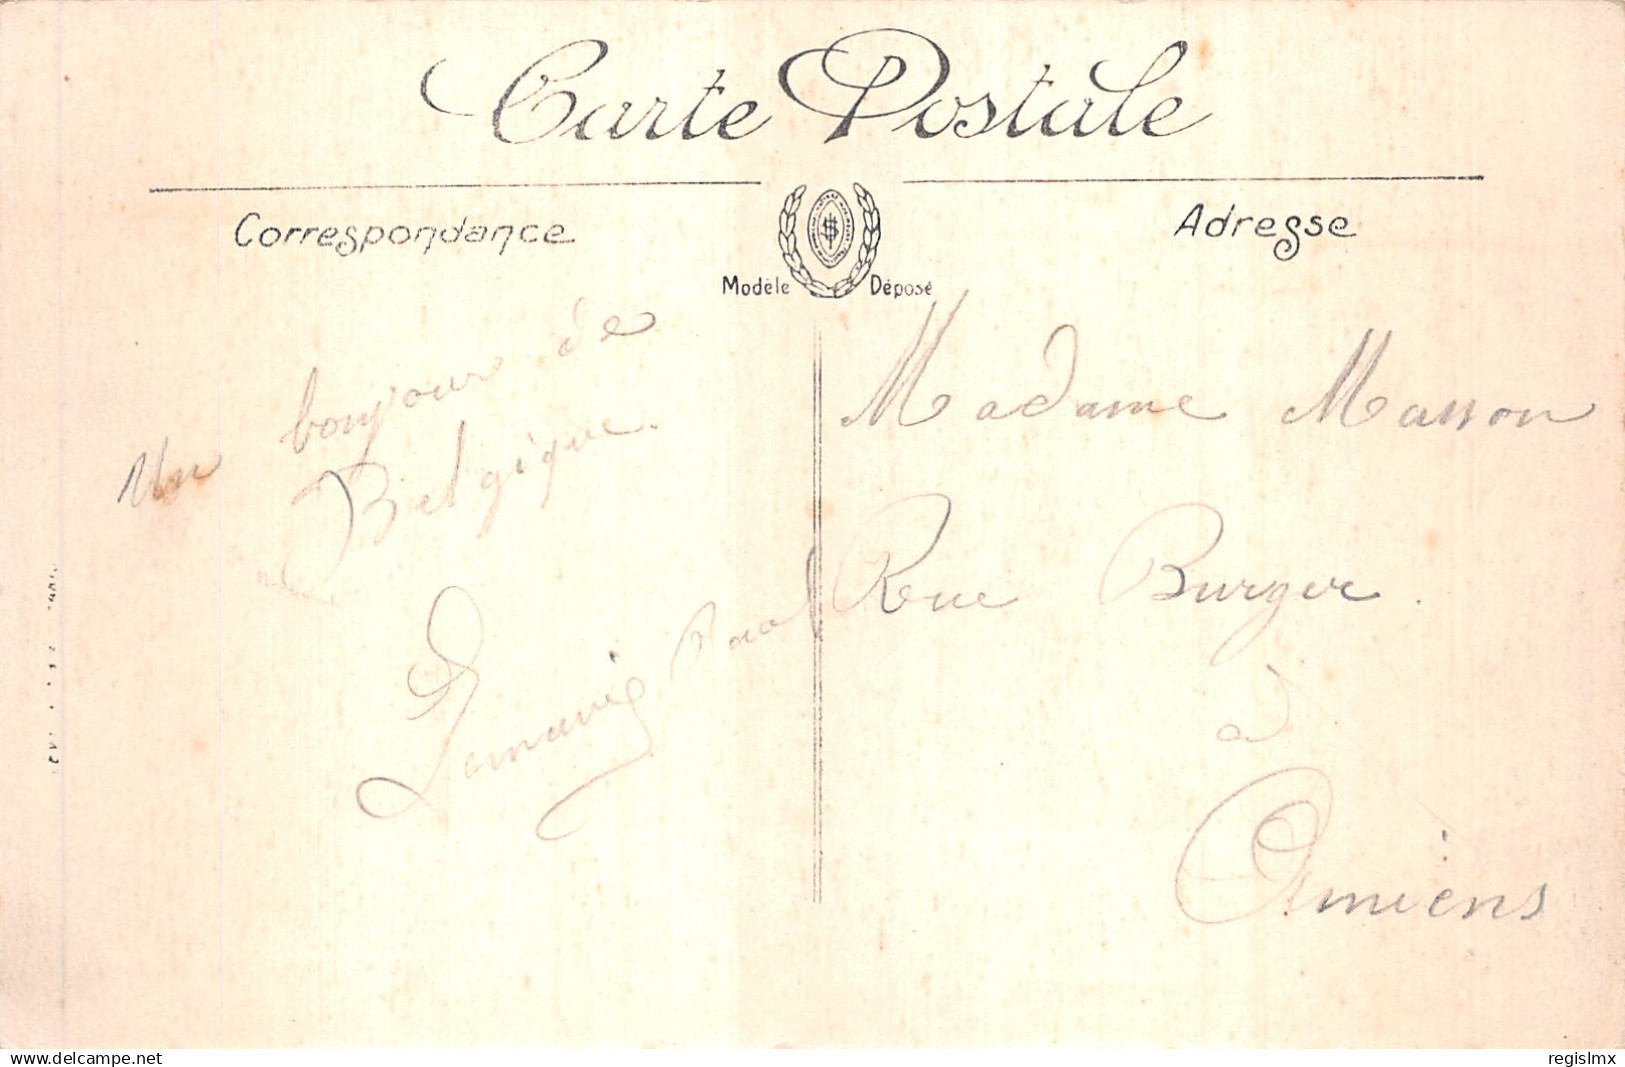 Carte Postale
Correspondance
Adresse
Modèle Déposé
Un bonjour de
Belgique.
Madame Masson
Rue Burger.
à
Amiens
www.delcampe.net
regislmx